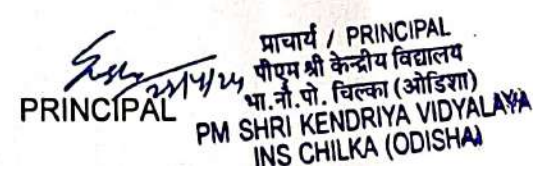 PRINCIPAL
प्राचार्य / PRINCIPAL
पीएम श्री केन्द्रीय विद्यालय
भा.नौ.पो. चिल्का (ओडिशा)
PM SHRI KENDRIYA VIDYALAYA
INS CHILKA (ODISHA)